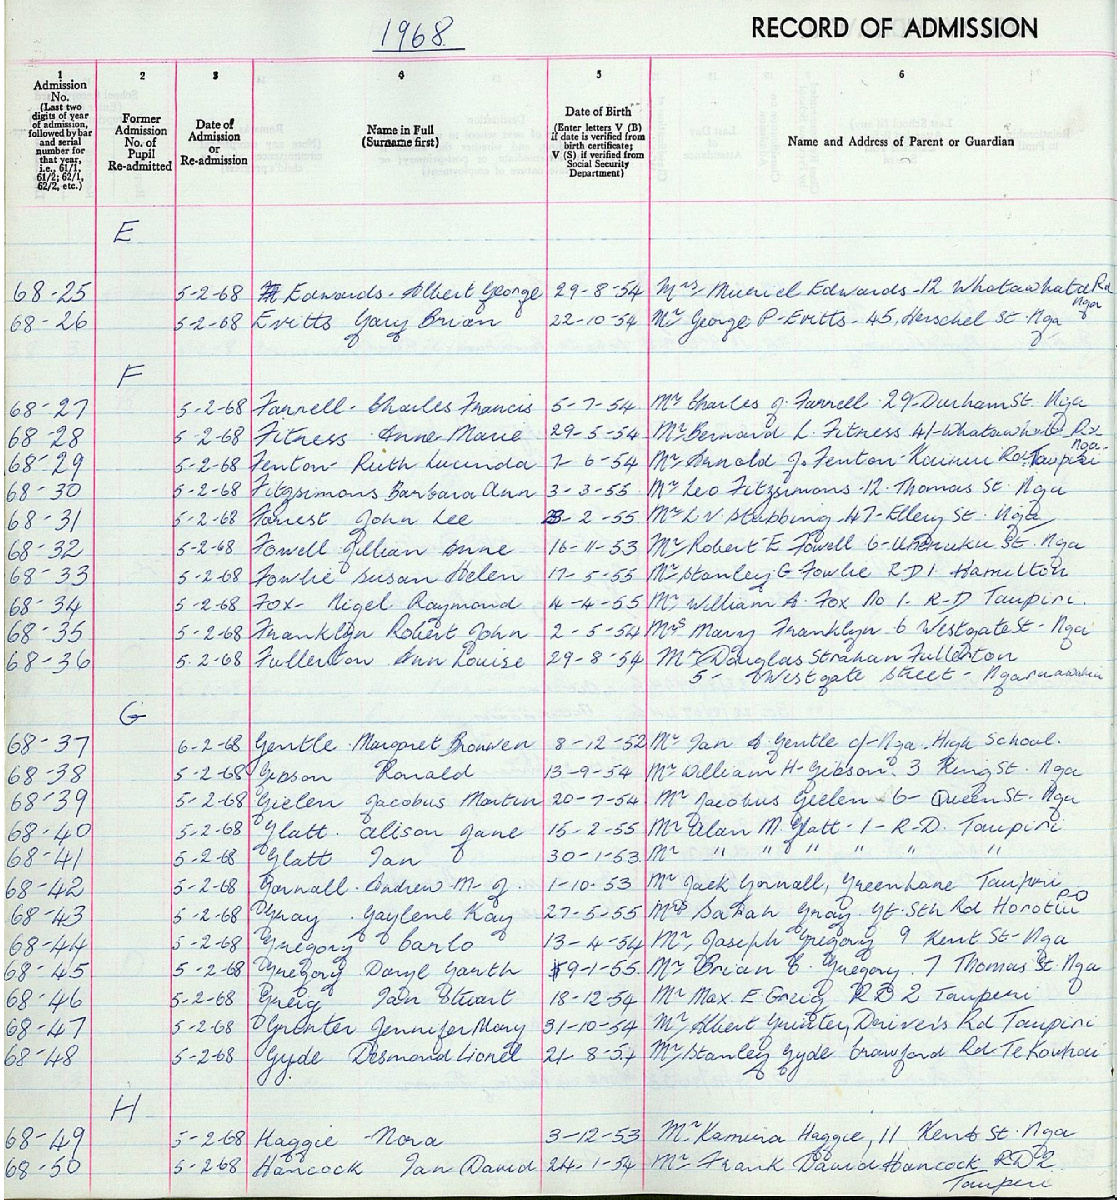 1968
RECORD OF ADMISSION
1 2 3 4 5 6
Admission No. (Last two digits of year of admission, followed by bar and serial number for that year, i.e., 61/1, 61/2; 62/1, 62/2, etc.)
Former Admission No. of Pupil Re-admitted
Date of Admission or Re-admission
Name in Full (Surname first)
Date of Birth (Enter letters V (B) if date is verified from birth certificate; V (S) if verified from Social Security Department)
Name and Address of Parent or Guardian
E
68-25 5-2-68 Edwards - Albert George 29-8-54 Mrs Muriel Edwards - 12 Whatawhata Rd Nga
68-26 5-2-68 Evitts Gary Brian 22-10-54 Mr George P. Evitts - 45, Herschel St. Nga
F
68-27 5-2-68 Farrell - Charles Francis 5-7-54 Mr Charles J. Farrell 29 Durham St. Nga
68-28 5-2-68 Fitness Anne Marie 29-5-54 Mr Bernard L. Fitness 41-Whatawhata Rd Nga.
68-29 5-2-68 Fenton - Ruth Lucinda 7-6-54 Mr Arnold J. Fenton Rd. Taupiri
68-30 5-2-68 Fitzsimons Barbara Ann 3-3-55 Mr Leo Fitzsimons - 12. Thomas St. Nga
68-31 5-2-68 Forrest John Lee 3-2-55 Mr L V Stubbing 47-Ellery St. Nga
68-32 5-2-68 Fowell Gillian Anne 16-11-53 Mr Robert E Fowell 6- St. Nga
68-33 5-2-68 Fowlie Susan Helen 17-5-55 Mr Stanley G Fowlie R D 1 Hamilton
68-34 5-2-68 Fox - Nigel Raymond 4-4-55 Mr William A. Fox No 1. R-D Taupiri.
68-35 5-2-68 Franklyn Robert John 2-5-54 Mrs Mary Franklyn 6 Westgate St - Nga
68-36 5-2-68 Fullerton Ann Louise 29-8-54 Mr Douglas Strahan Fullerton
5- Westgate Street - Ngaruawahia
G
68-37 6-2-68 Gentle - Margaret Bronwen 8-12-52 Mr Ian Gentle c/- Nga. High School.
68-38 5-2-68 Gibson Ronald 13-9-54 Mr William H. Gibson. 3 King St. Nga
68-39 5-2-68 Gielen Jacobus Martin 20-7-54 Mr Jacobus Geelen 6- Queen St. Nga
68-40 5-2-68 Glatt. Alison Jane 15-2-55 Mr Alan M. Glatt - 1 - R-D. Taupiri
68-41 5-2-68 Glatt Ian 30-1-53 Mr " " " " " "
68-42 5-2-68 Gornall. Andrew M. J. 1-10-53 Mr Jack Gornall, Greenlane Taupiri
68-43 5-2-68 Gray Gaylene Kay 27-5-55 Mrs Sarah Gray. Gt. Sth Rd Horotiu P.O
68-44 5-2-68 Gregory Carlo 13-4-54 Mr, Joseph Gregory 9 Kent St - Nga
68-45 5-2-68 Gregory Daryl Garth 9-1-55 Mr Brian E. Gregory. 7 Thomas St. Nga
68-46 5-2-68 Greig Ian Stuart 18-12-54 Mr Max. E Greig R D 2 Taupiri
68-47 5-2-68 Grunter Jennifer Mary 31-10-54 Mr Albert Driver's Rd Taupiri
68-48 5-2-68 Gyde Desmond Lionel 21-8-54 Mr Stanley Gyde Crawford Rd Te Kowhai
H
68-49 5-2-68 Haggie Nora 3-12-53 Mr Kamura Haggie, 11 Kent St. Nga
68-50 5-2-68 Hancock Ian David 24-1-54 Mr Frank David Hancock R D 2
Taupiri